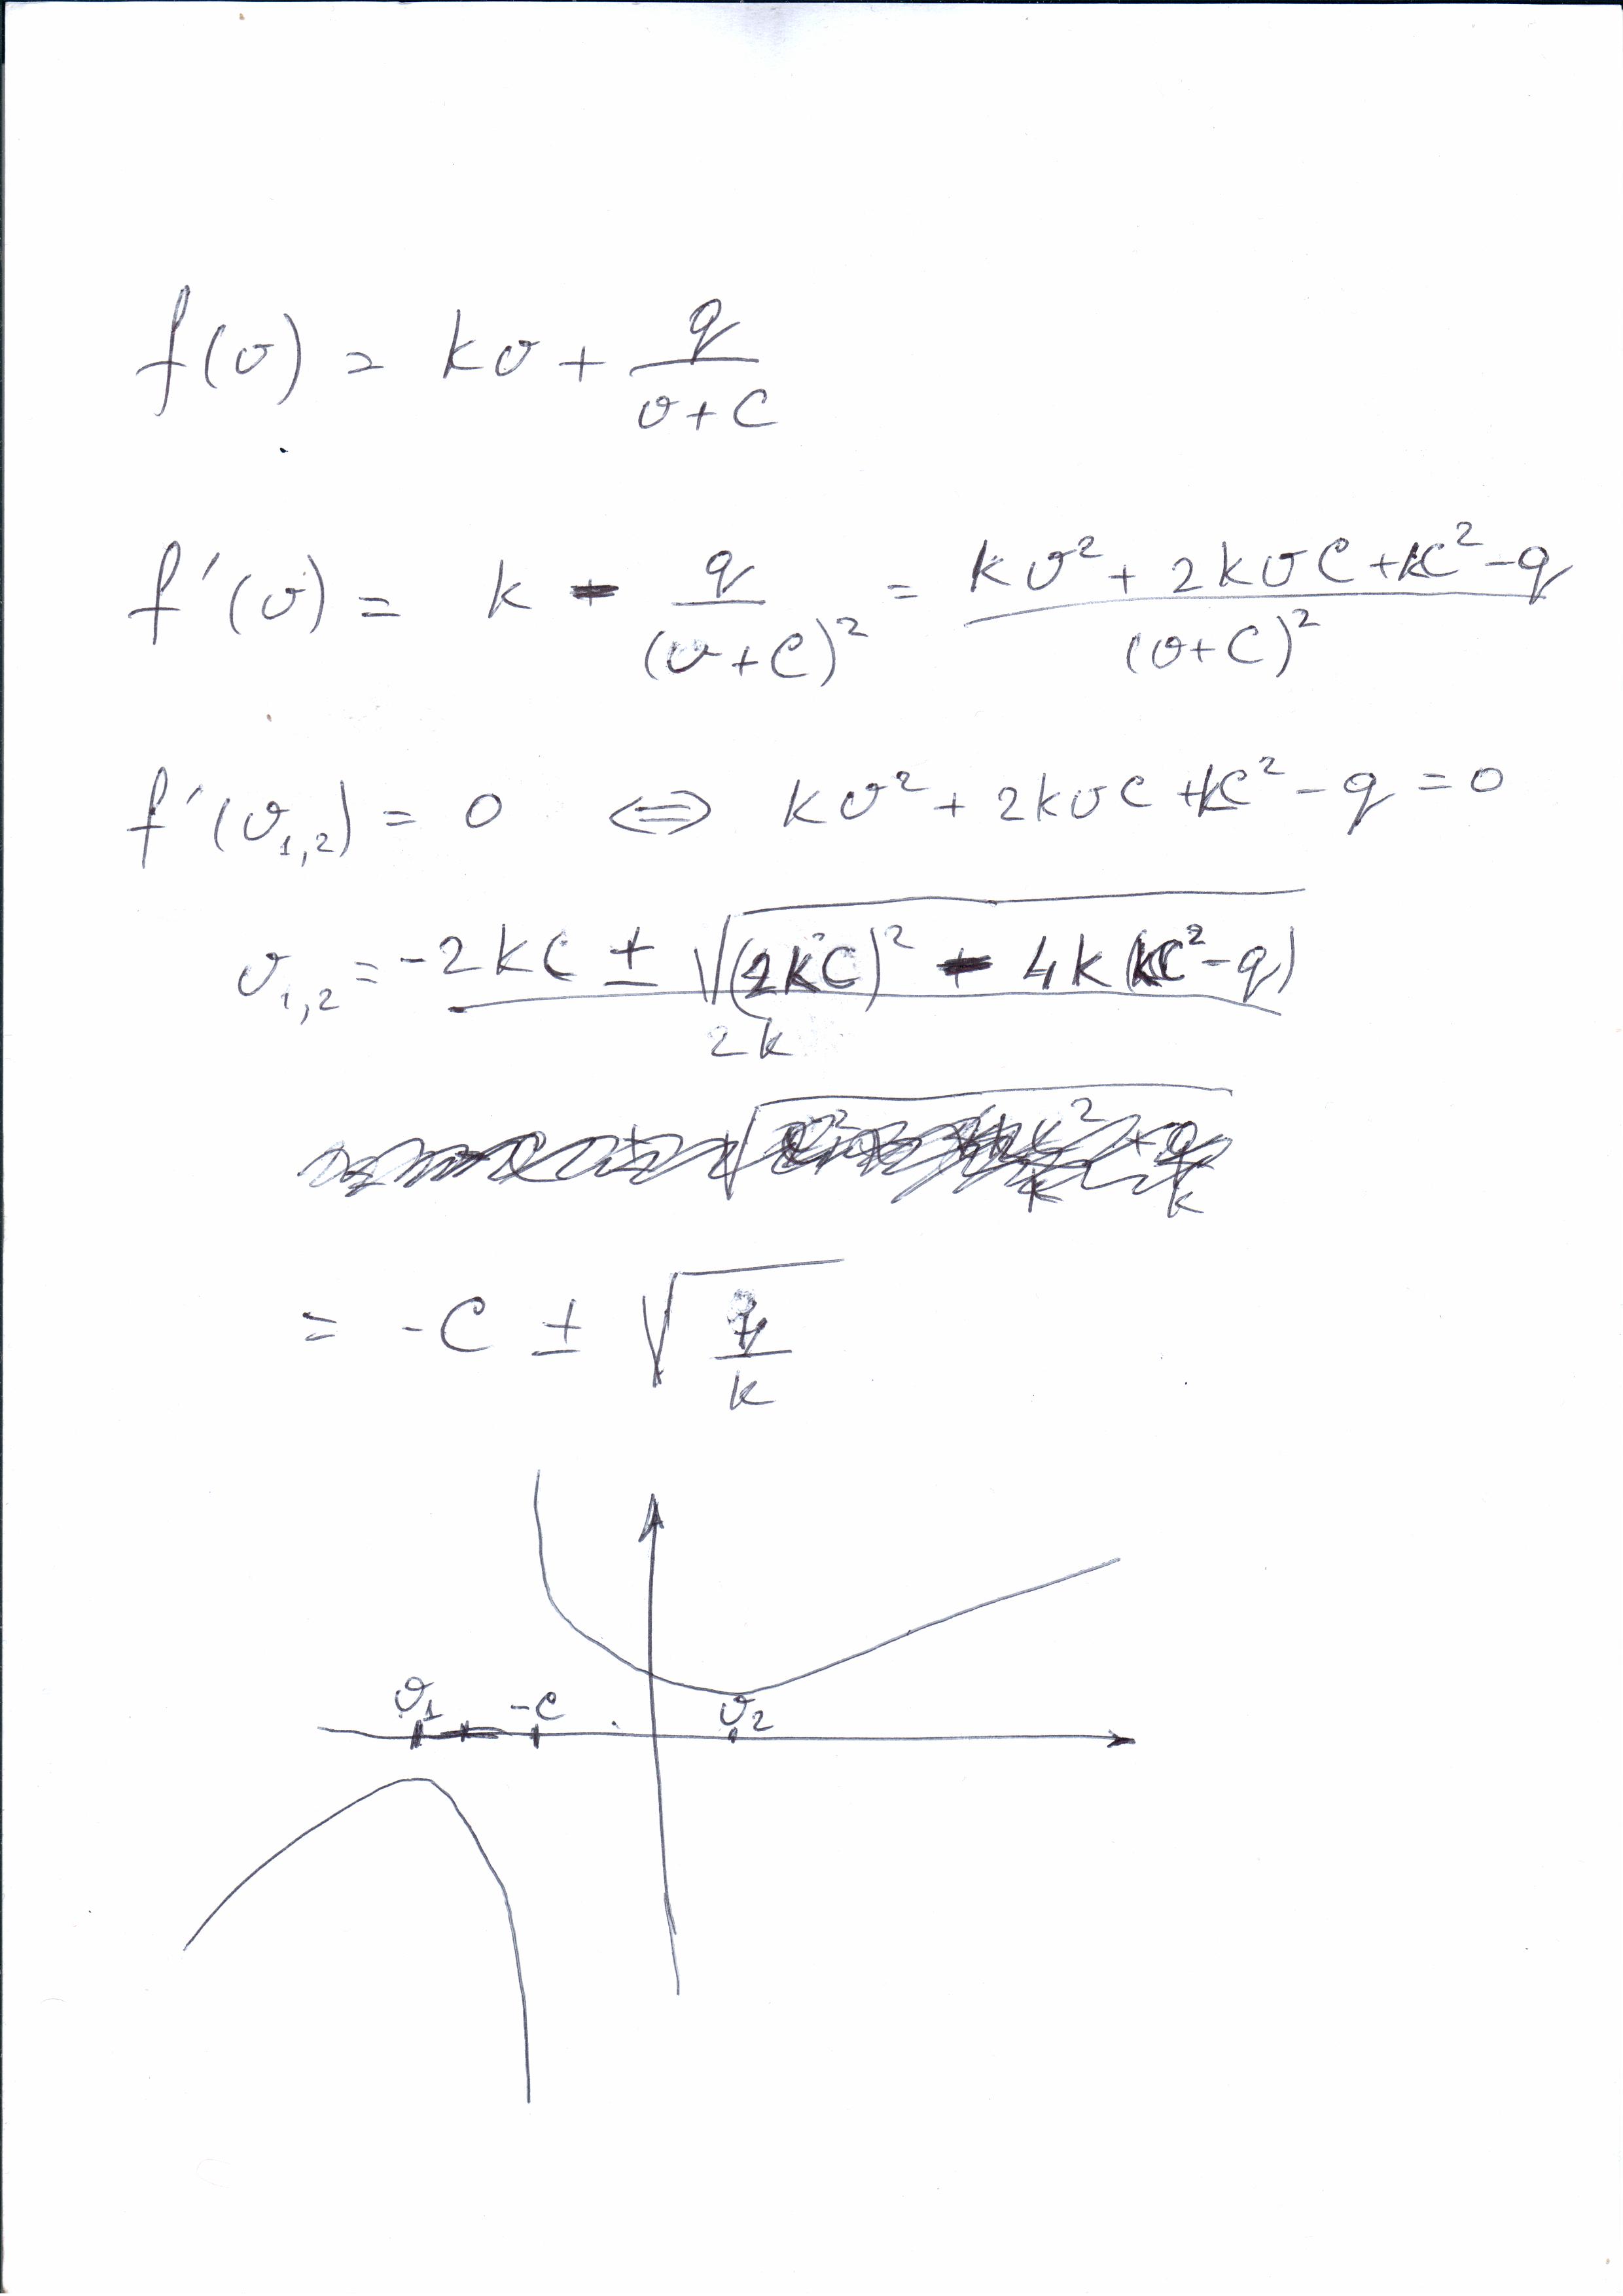 f(v) = kv + q/(v+C)
f'(v) = k - q/(v+C)² = (kv² + 2kvC + kC² - q)/(v+C)²
f'(v₁,₂) = 0 ⟺ kv² + 2kvC + kC² - q = 0
v₁,₂ = (-2kC ± √((2kC)² - 4k(kC² - q)))/2k
= -C ± √(q/k)
v₁ -C v₂